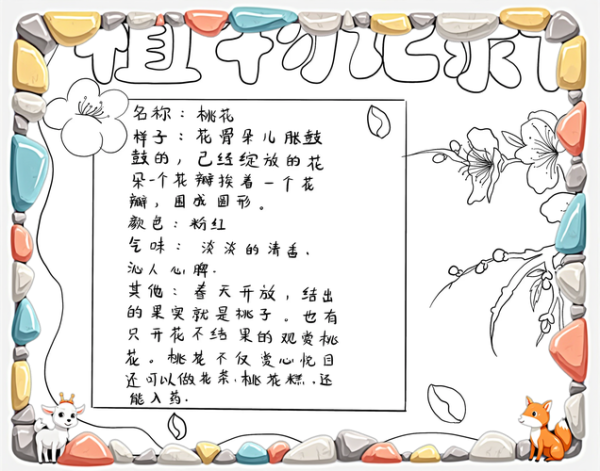 植物记录
名称：桃花
样子：花骨朵儿胀鼓
鼓的，已经绽放的花
朵一个花瓣挨着一个花
瓣，围成圆形。
颜色：粉红
气味：淡淡的清香，
沁人心脾.
其他：春天开放，结出
的果实就是桃子。也有
只开花不结果的观赏桃
花。桃花不仅赏心悦目
还可以做花茶.桃花糕.还
能入药.